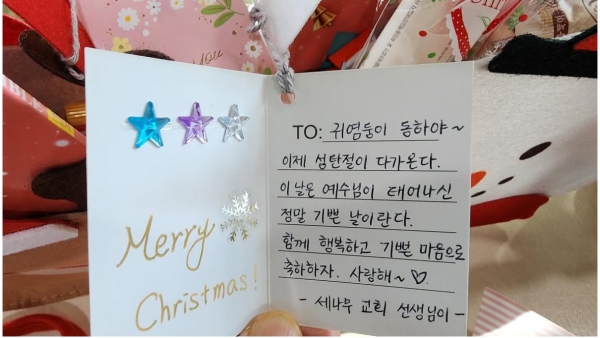 you
Merry
Christmas!
TO: 귀염둥이 동하야~
이제 성탄절이 다가온다.
이 날은 예수님이 태어나신
정말 기쁜 날이란다.
함께 행복하고 기쁜 마음으로
축하하자. 사랑해~♡.
- 세나무 교회 선생님이 -